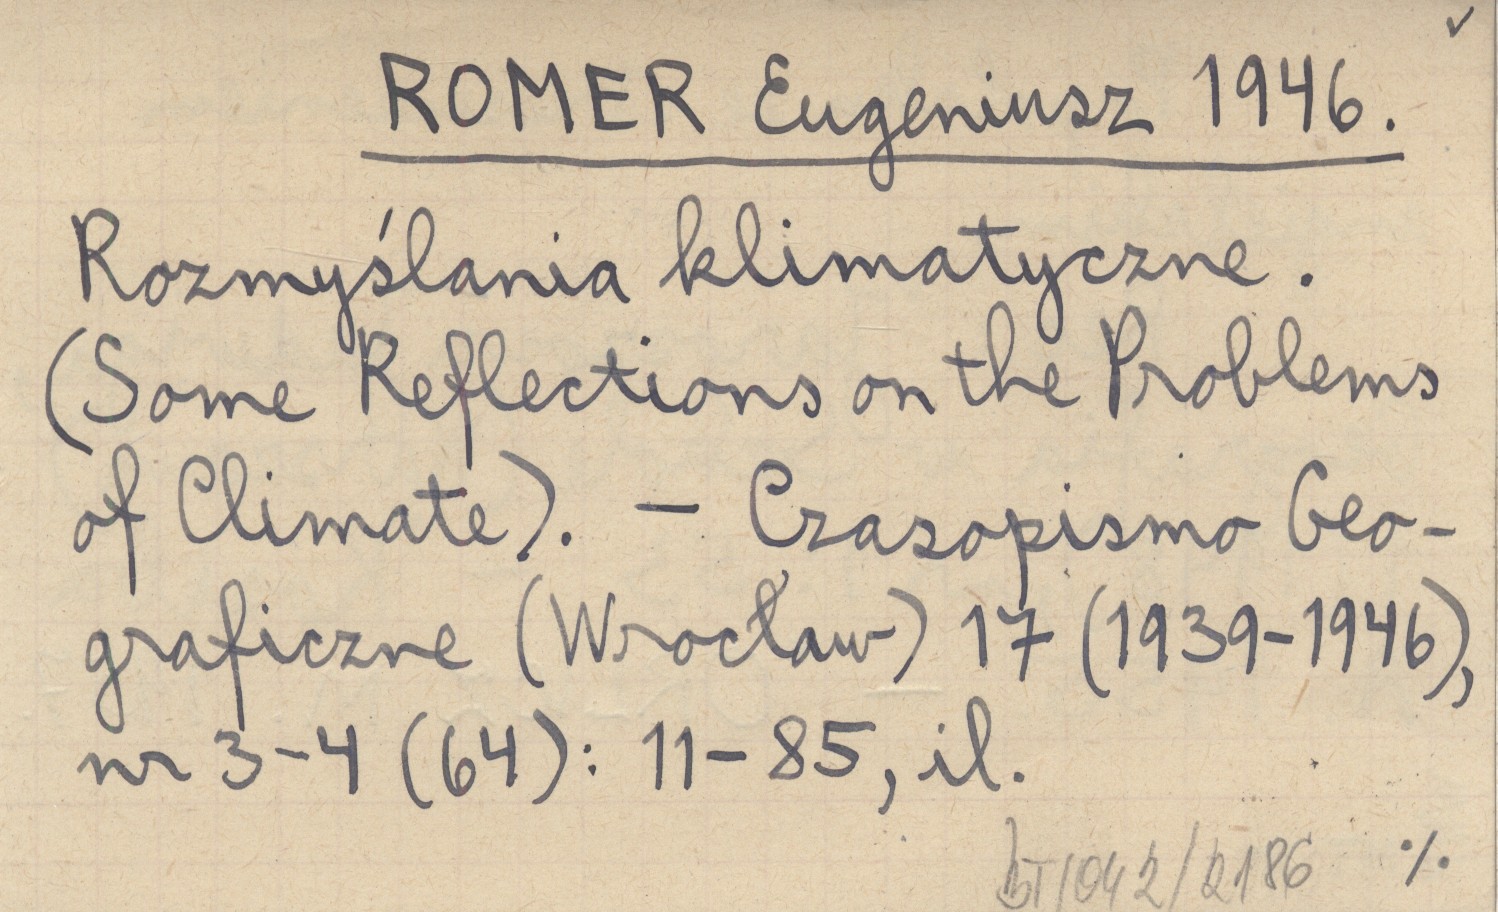 ✓
ROMER Eugeniusz 1946.
Rozmyślania klimatyczne.
(Some Reflections on the Problems
of Climate). – Czasopismo Geo-
graficzne (Wrocław) 17 (1939-1946),
nr 3-4 (64): 11-85, il.
/042/2186 ·/.